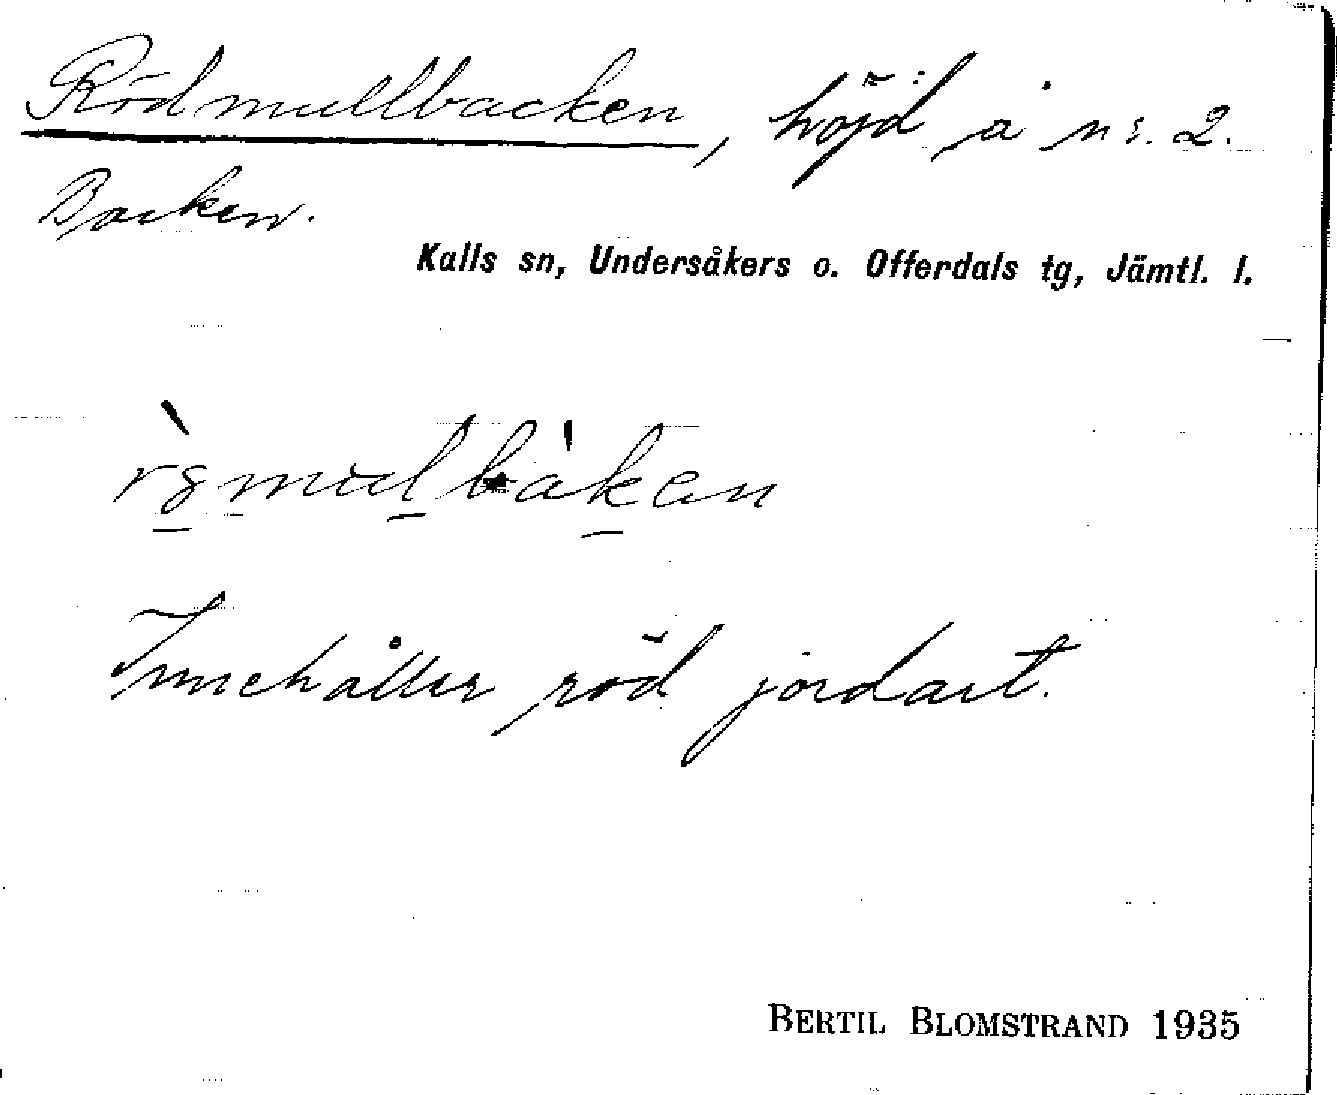 Rödmullbacken, höjd å nr. 2.
Backen.
Kalls sn, Undersåkers o. Offerdals tg, Jämtl. l.
Innehåller röd jordart.
BERTIL BLOMSTRAND 1935